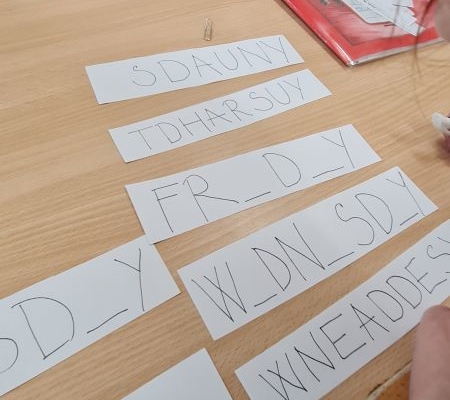 SDAUNY
TDHARSUY
FR_D_Y
W_DN_SD_Y
SD_Y
WNEADDES